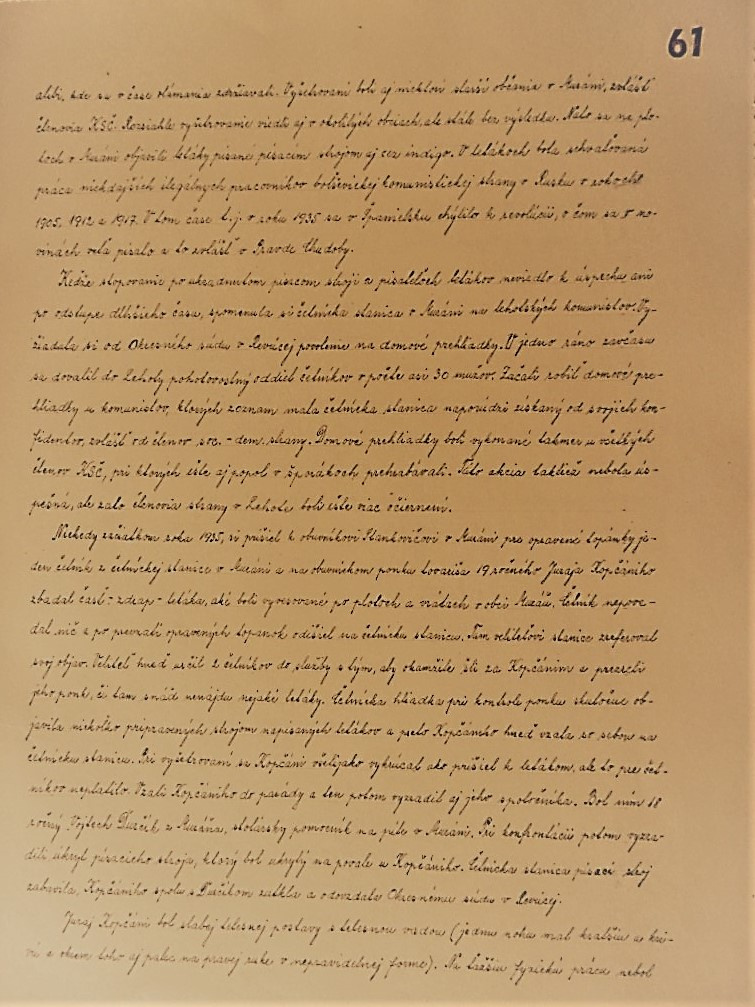 61
alibi, kde sa v čase vlámania zdržiavali. Vyšetrovaní boli aj niektorí starší občania v Muráni, zvlášť
členovia KSČ. Rozsiahle vyšetrovanie viedli aj v okolitých obciach, ale stále bez výsledku. Nato sa na plo-
toch v Muráni objavili letáky písané písacím strojom aj cez indigo. V letákoch bola schvaľovaná
práca niekdajších ilegálnych pracovníkov boľševickej komunistickej strany v Rusku v rokoch
1905, 1912 a 1917. V tom čase t.j. v roku 1935 sa v Španielsku chýlilo k revolúcii, o čom sa v no-
vinách veľa písalo a to zvlášť v Pravde Chudoby.
Keďže stopovanie po ukradnutom písacom stroji a pisateľoch letákov neviedlo k úspechu ani
po odstupe dlhšieho času, spomenula si četnícka stanica v Muráni na leholských komunistov. Vy-
žiadala si od Okresného súdu v Revúcej povolenie na domové prehliadky. V jedno ráno zavčasu
sa dovalil do Lehoty pohotovostný oddiel četníkov v počte asi 30 mužov. Začali robiť domové pre-
hliadky u komunistov, ktorých zoznam mala četnícka stanica naporúdzi získaný od svojich kon-
fidentov, zvlášť od členov soc.-dem. strany. Domové prehliadky boli vykonané takmer u všetkých
členov KSČ, pri ktorých ešte aj popol v šporákoch prehrabávali. Táto akcia taktiež nebola ús-
pešná, ale zato členovia strany v Lehote boli ešte viac očiernení.
Niekedy začiatkom roku 1935, si prišiel k obuvníkovi Stankovičovi v Muráni pre opravené topánky je-
den četník z četníckej stanice v Muráni a na obuvníckom ponku tovariša 19 ročného Juraja Kopčániho
zbadal časť - zdrap - letáka, aké boli vyvesované po plotoch a vrátach v obci Muráň. Četník nepove-
dal nič a po prevzatí opravených topánok odišiel na četnícku stanicu. Tam veliteľovi stanice zreferoval
svoj objav. Veliteľ hneď určil 2 četníkov do služby s tým, aby okamžite šli za Kopčánim a prezreli
jeho ponk, či tam snáď nenájdu nejaké letáky. Četnícka hliadka pri kontrole ponku skutočne ob-
javila niekoľko pripravených strojom napísaných letákov a preto Kopčániho hneď vzala so sebou na
četnícku stanicu. Pri vyšetrovaní sa Kopčáni všelijako vykrúcal ako prišiel k letákom, ale to pre čet-
níkov neplatilo. Vzali Kopčániho do parády a ten potom vyzradil aj jeho spoločníka. Bol ním 18
ročný Vojtech Ďurčík z Muráňa, stolársky pomocník na píle v Muráni. Pri konfrontácii potom vyzra-
dili úkryt písacieho stroja, ktorý bol ukrytý na povale u Kopčániho. Četnícka stanica písací stroj
zabavila, Kopčániho spolu s Ďurčíkom zatkla a odovzdala Okresnému súdu v Revúcej.
Juraj Kopčáni bol slabej telesnej postavy s telesnou vadou (jednu nohu mal kratšiu a kri-
vú a okrem toho aj palec na pravej ruke v nepravidelnej forme). Na ťažšiu fyzickú prácu nebol